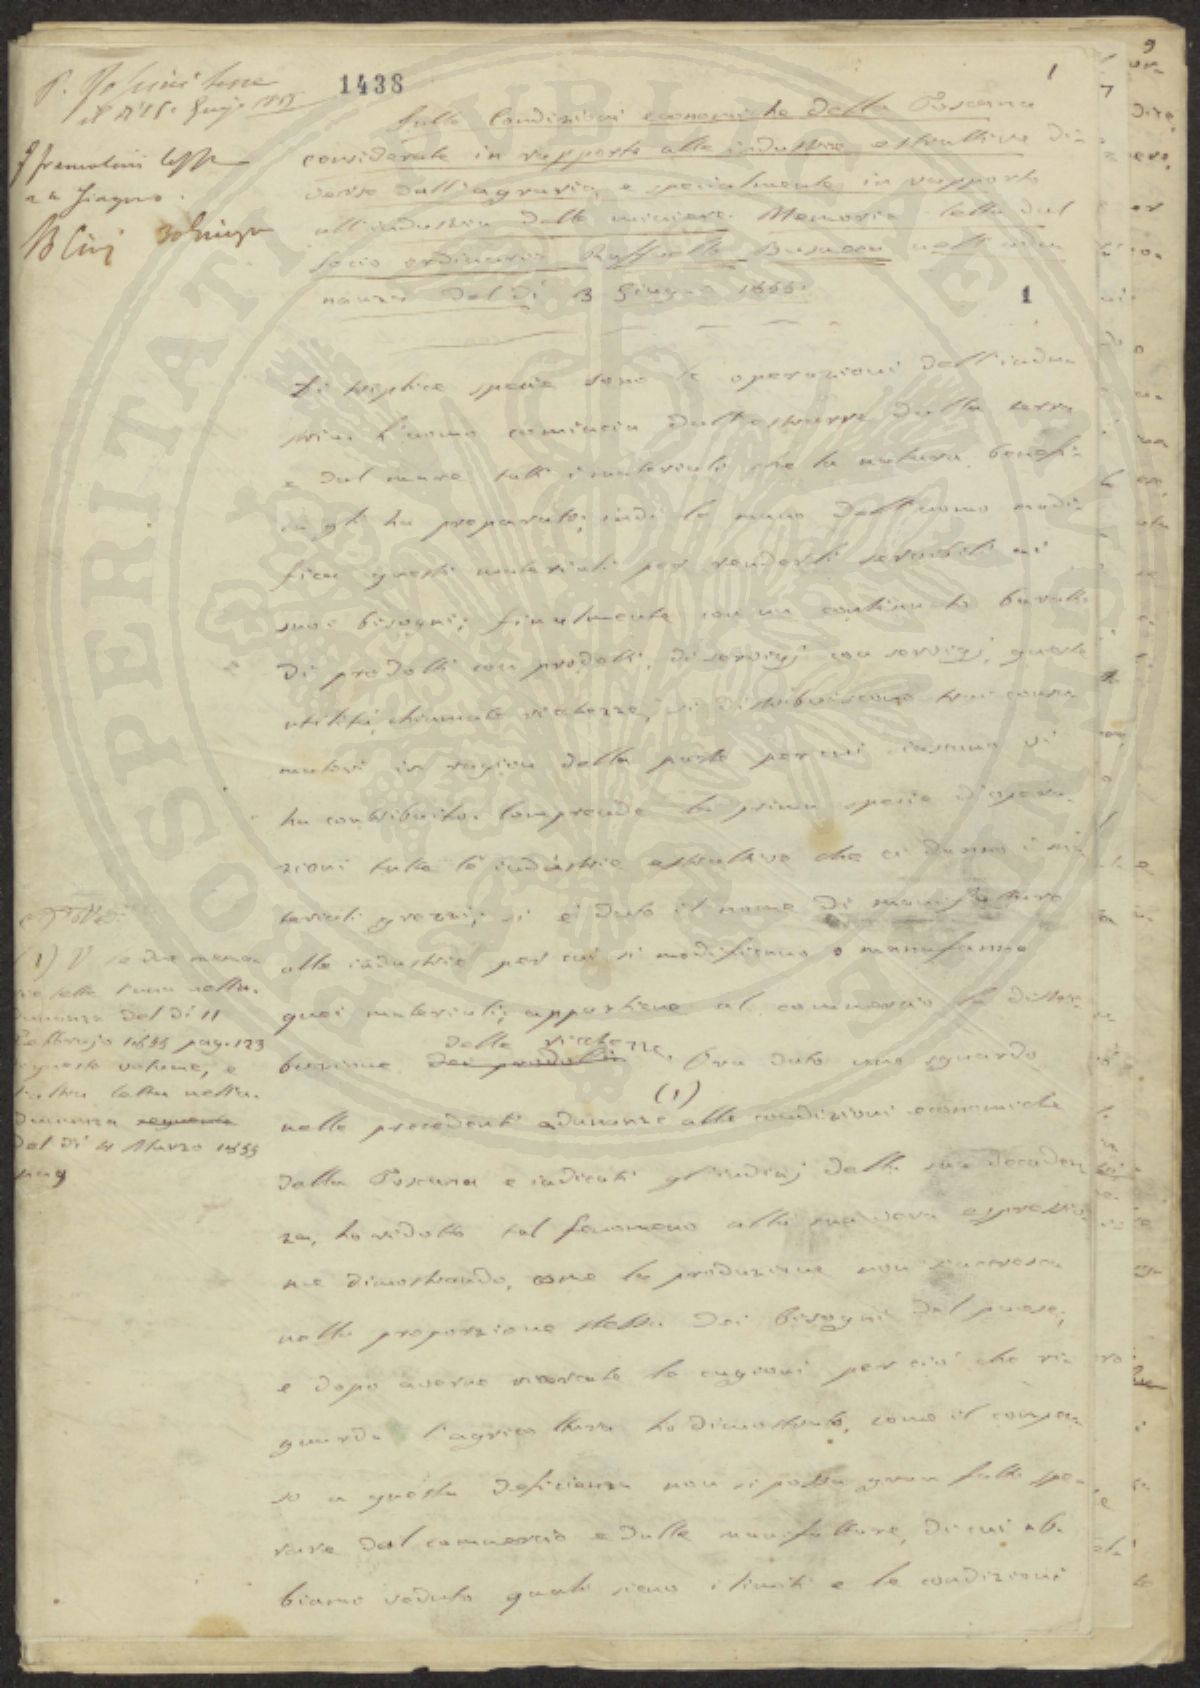 1438
1
Sulle Condizioni economiche della Toscana
considerate in rapporto alle industrie estrattive di-
verse dall'agraria, e specialmente in rapporto
all'industria delle miniere. Memoria letta dal
Socio ordinario Raffaello Busacca nell'adu
nanza del dì 3 Giugno 1855.
1
2 Giugno.
Di triplice specie sono le operazioni dell'indu
stria. L'uomo comincia dall'estrarre dalla terra
e dal mare tutti i materiali che la natura benefi-
ca gli ha preparato; indi la mano dell'uomo modi-
fica questi materiali per renderli servibili ai
suoi bisogni; finalmente con un continuato baratto
di prodotti con prodotti, di servigj con servigj, queste
utilità, chiamate ricchezze, si distribuiscono tra i consu
matori in ragione della parte per cui ciascuno vi
ha contribuito. Comprende la prima specie d'opera-
zioni tutte le industrie estrattive che ci danno i ma
teriali grezzi; si è dato il nome di manifatture
alle industrie per cui si modificano o manufanno
quei materiali; appartiene al commercio la distri
buzione dei prodotti delle ricchezze. Ora dato uno sguardo
nelle precedenti adunanze (1) alle condizioni economiche
della Toscana e indicati gl'indizj della sua decaden
za, ho ridotto tal fenomeno alla sua vera espressio
ne dimostrando, come la produzione non s'accresca
nella proporzione stessa dei bisogni del paese;
e dopo averne ricercate le cagioni per ciò che ri-
guarda l'agricoltura ho dimostrato, come il compen-
so a questa deficienza non si possa gran fatto spe-
rare dal commercio e dalle manifatture, di cui ab-
biamo veduto quali sieno i limiti e le condizioni
(1) V. le due memo-
rie letta l'una nella-
dunanza del dì 11
Febbrajo 1855 pag. 123
questo volume, e
l'altra letta nella-
dunanza seguente
del dì 4 Marzo 1855
pag